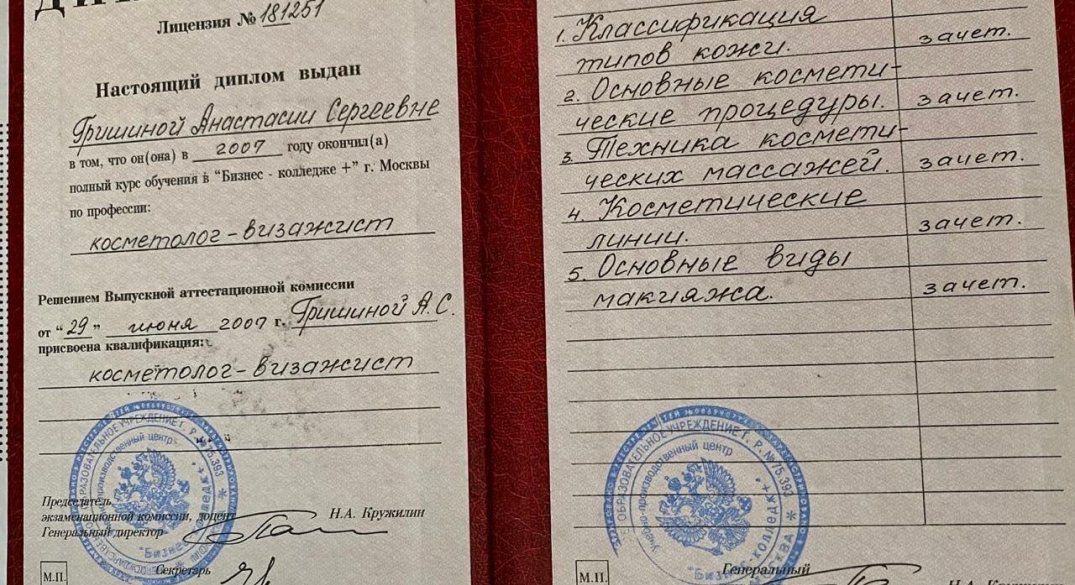 Лицензия № 181251
Настоящий диплом выдан
Гришиной Анастасии Сергеевне
в том, что он(она) в 2007 году окончил(а)
полный курс обучения в “Бизнес - колледже +” г. Москвы
по профессии:
косметолог-визажист
Решением Выпускной аттестационной комиссии
от “29” июня 2007 г. Гришиной А.С.
присвоена квалификация:
косметолог-визажист
Председатель
экзаменационной комиссии, доцент
Генеральный директор
Н.А. Кружилин
М.П.
Секретарь
1. Классификация
типов кожи. зачет.
2. Основные космети-
ческие процедуры. зачет.
3. Техника космети-
ческих массажей. зачет.
4. Косметические
линии. зачет.
5. Основные виды
макияжа. зачет.
ОБРАЗОВАТЕЛЬНОЕ УЧРЕЖДЕНИЕ Г. Р. №75.393
Учебно-производственный центр
М.П.
Генеральный
Н.А. Кружилин